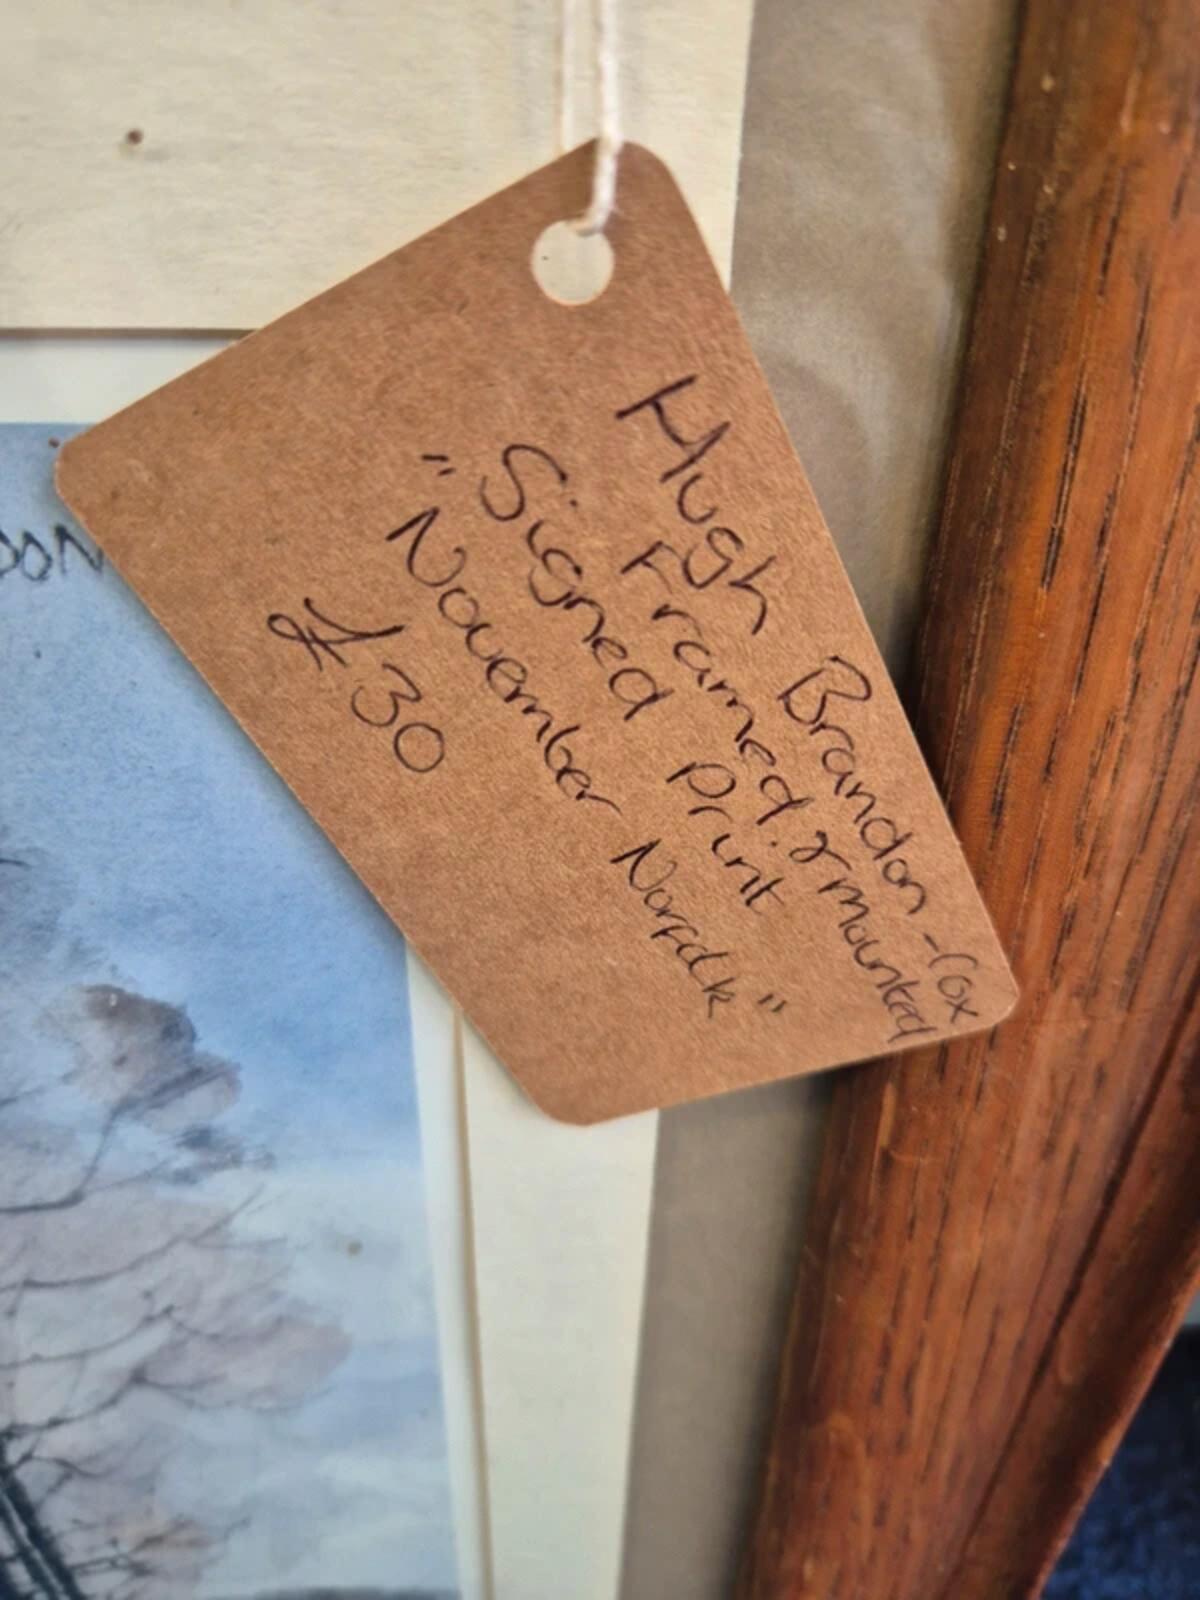 Hugh Brandon-Cox
Framed & mounted
Signed Print
"November Norfolk"
£30